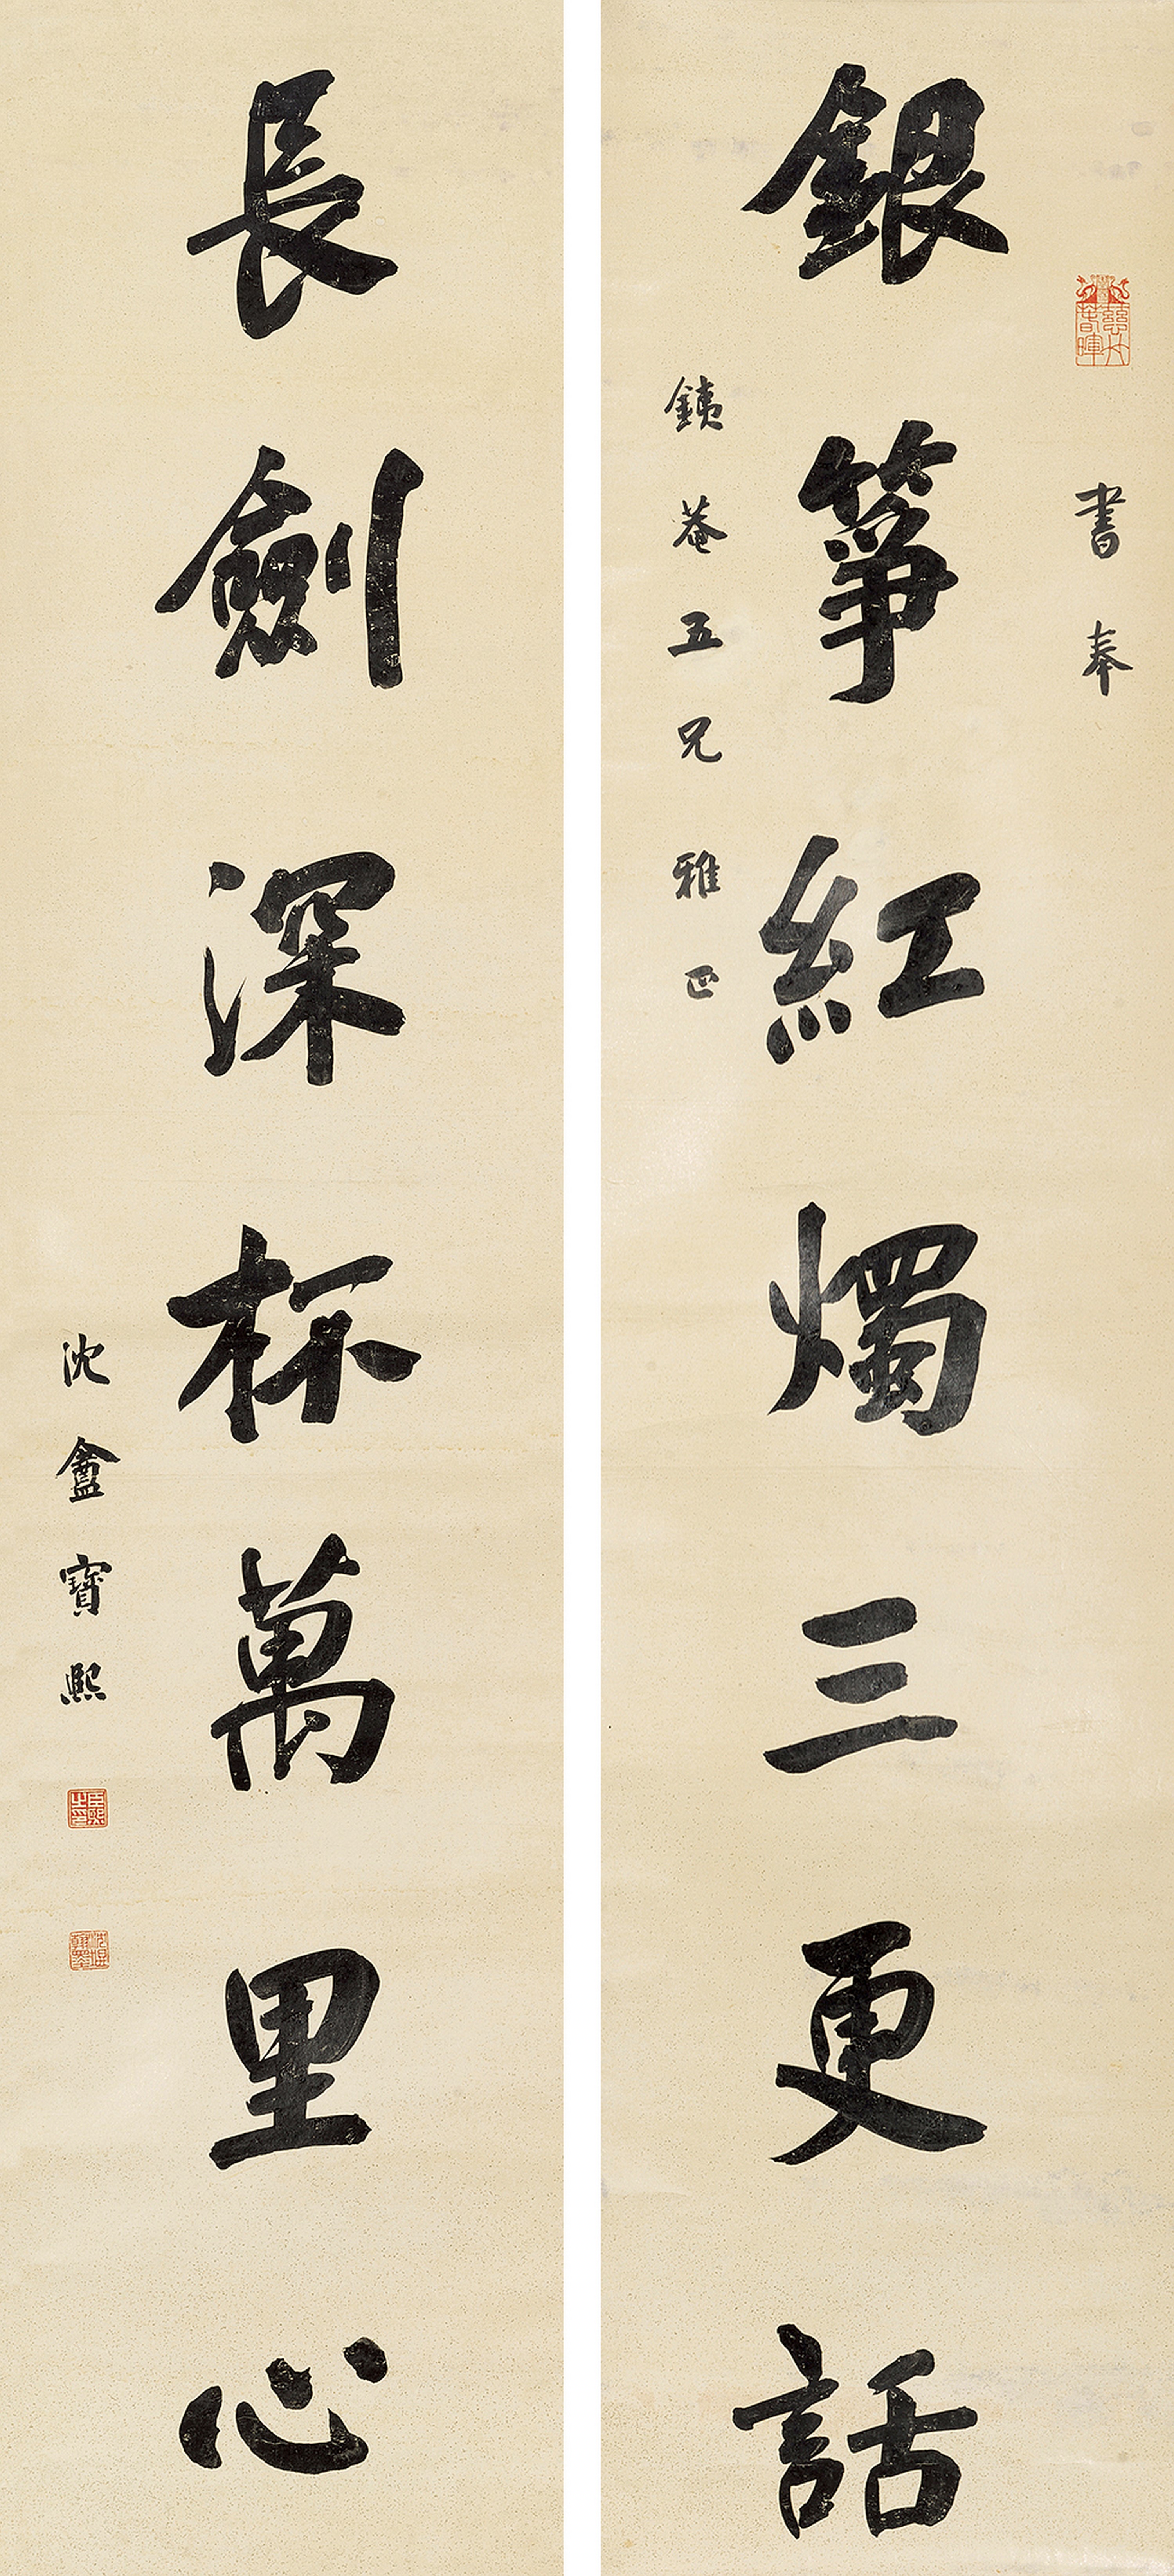 書奉
銀箏紅燭三更話
銕菴五兄雅正
長劍深杯萬里心
沈盦寶熙